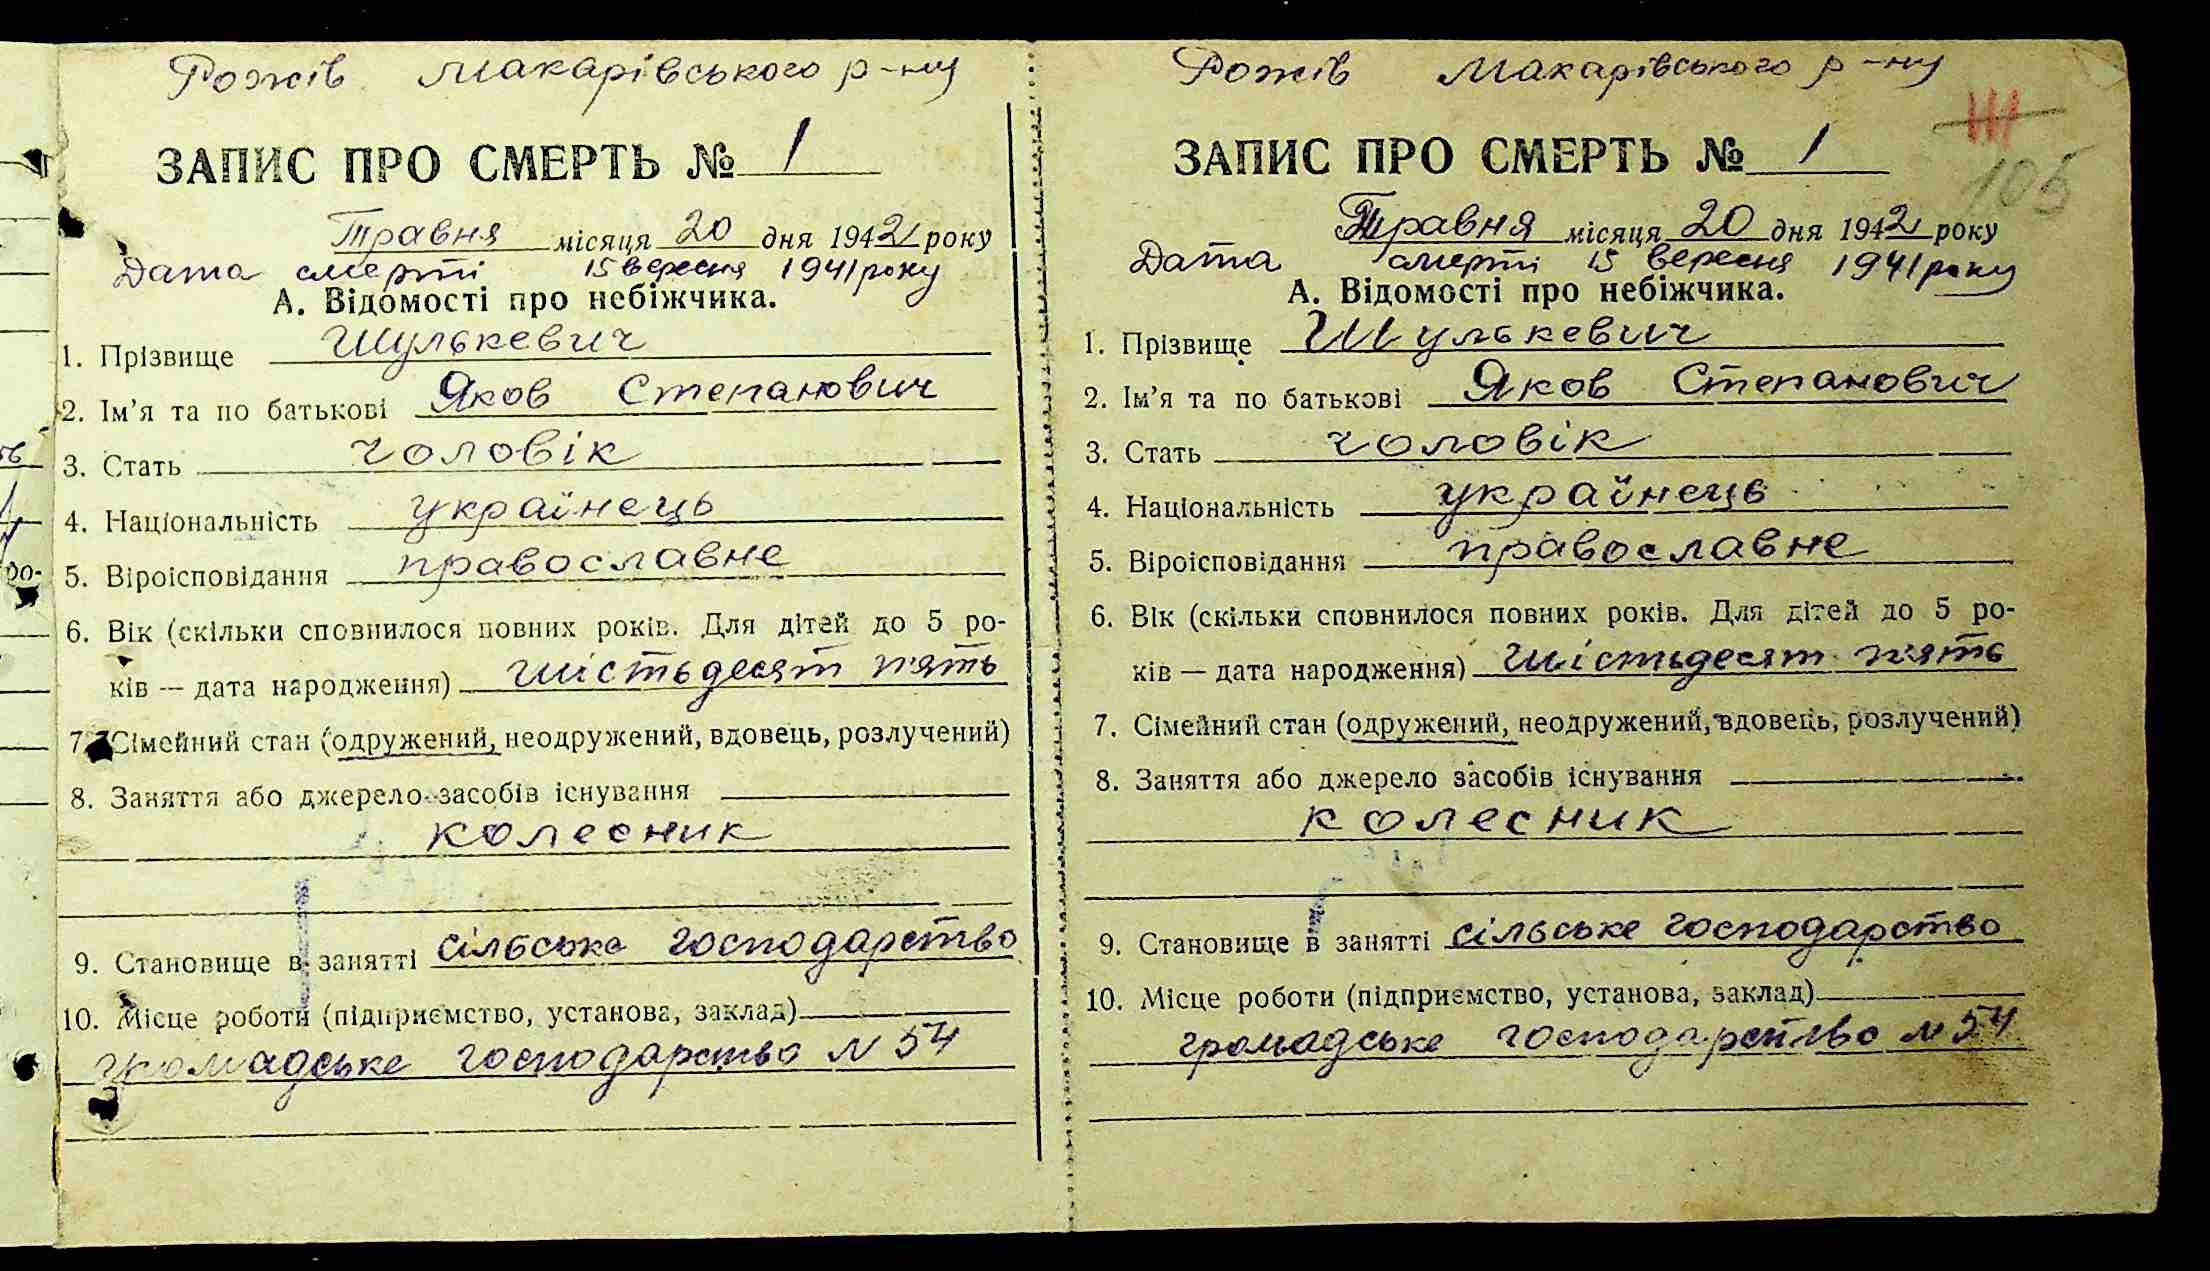 Рожів Макарівського р-ну
ЗАПИС ПРО СМЕРТЬ № 1
Травня місяця 20 дня 1942 року
Дата смерті 15 вересня 1941 року
А. Відомості про небіжчика.
1. Прізвище Шулькевич
2. Ім'я та по батькові Яков Степанович
3. Стать чоловік
4. Національність українець
5. Віроісповідання православне
6. Вік (скільки сповнилося повних років. Для дітей до 5 ро-
ків — дата народження) шістьдесят п'ять
7. Сімейний стан (одружений, неодружений, вдовець, розлучений)
8. Заняття або джерело засобів існування
колесник
9. Становище в занятті сільське господарство
10. Місце роботи (підприємство, установа, заклад)
громадське господарство № 54
Рожів Макарівського р-ну
105
ЗАПИС ПРО СМЕРТЬ № 1
Травня місяця 20 дня 1942 року
Дата смерті 15 вересня 1941 року
А. Відомості про небіжчика.
1. Прізвище Шулькевич
2. Ім'я та по батькові Яков Степанович
3. Стать чоловік
4. Національність українець
5. Віроісповідання православне
6. Вік (скільки сповнилося повних років. Для дітей до 5 ро-
ків — дата народження) шістьдесят п'ять
7. Сімейний стан (одружений, неодружений, вдовець, розлучений)
8. Заняття або джерело засобів існування
колесник
9. Становище в занятті сільське господарство
10. Місце роботи (підприємство, установа, заклад)
громадське господарство № 54